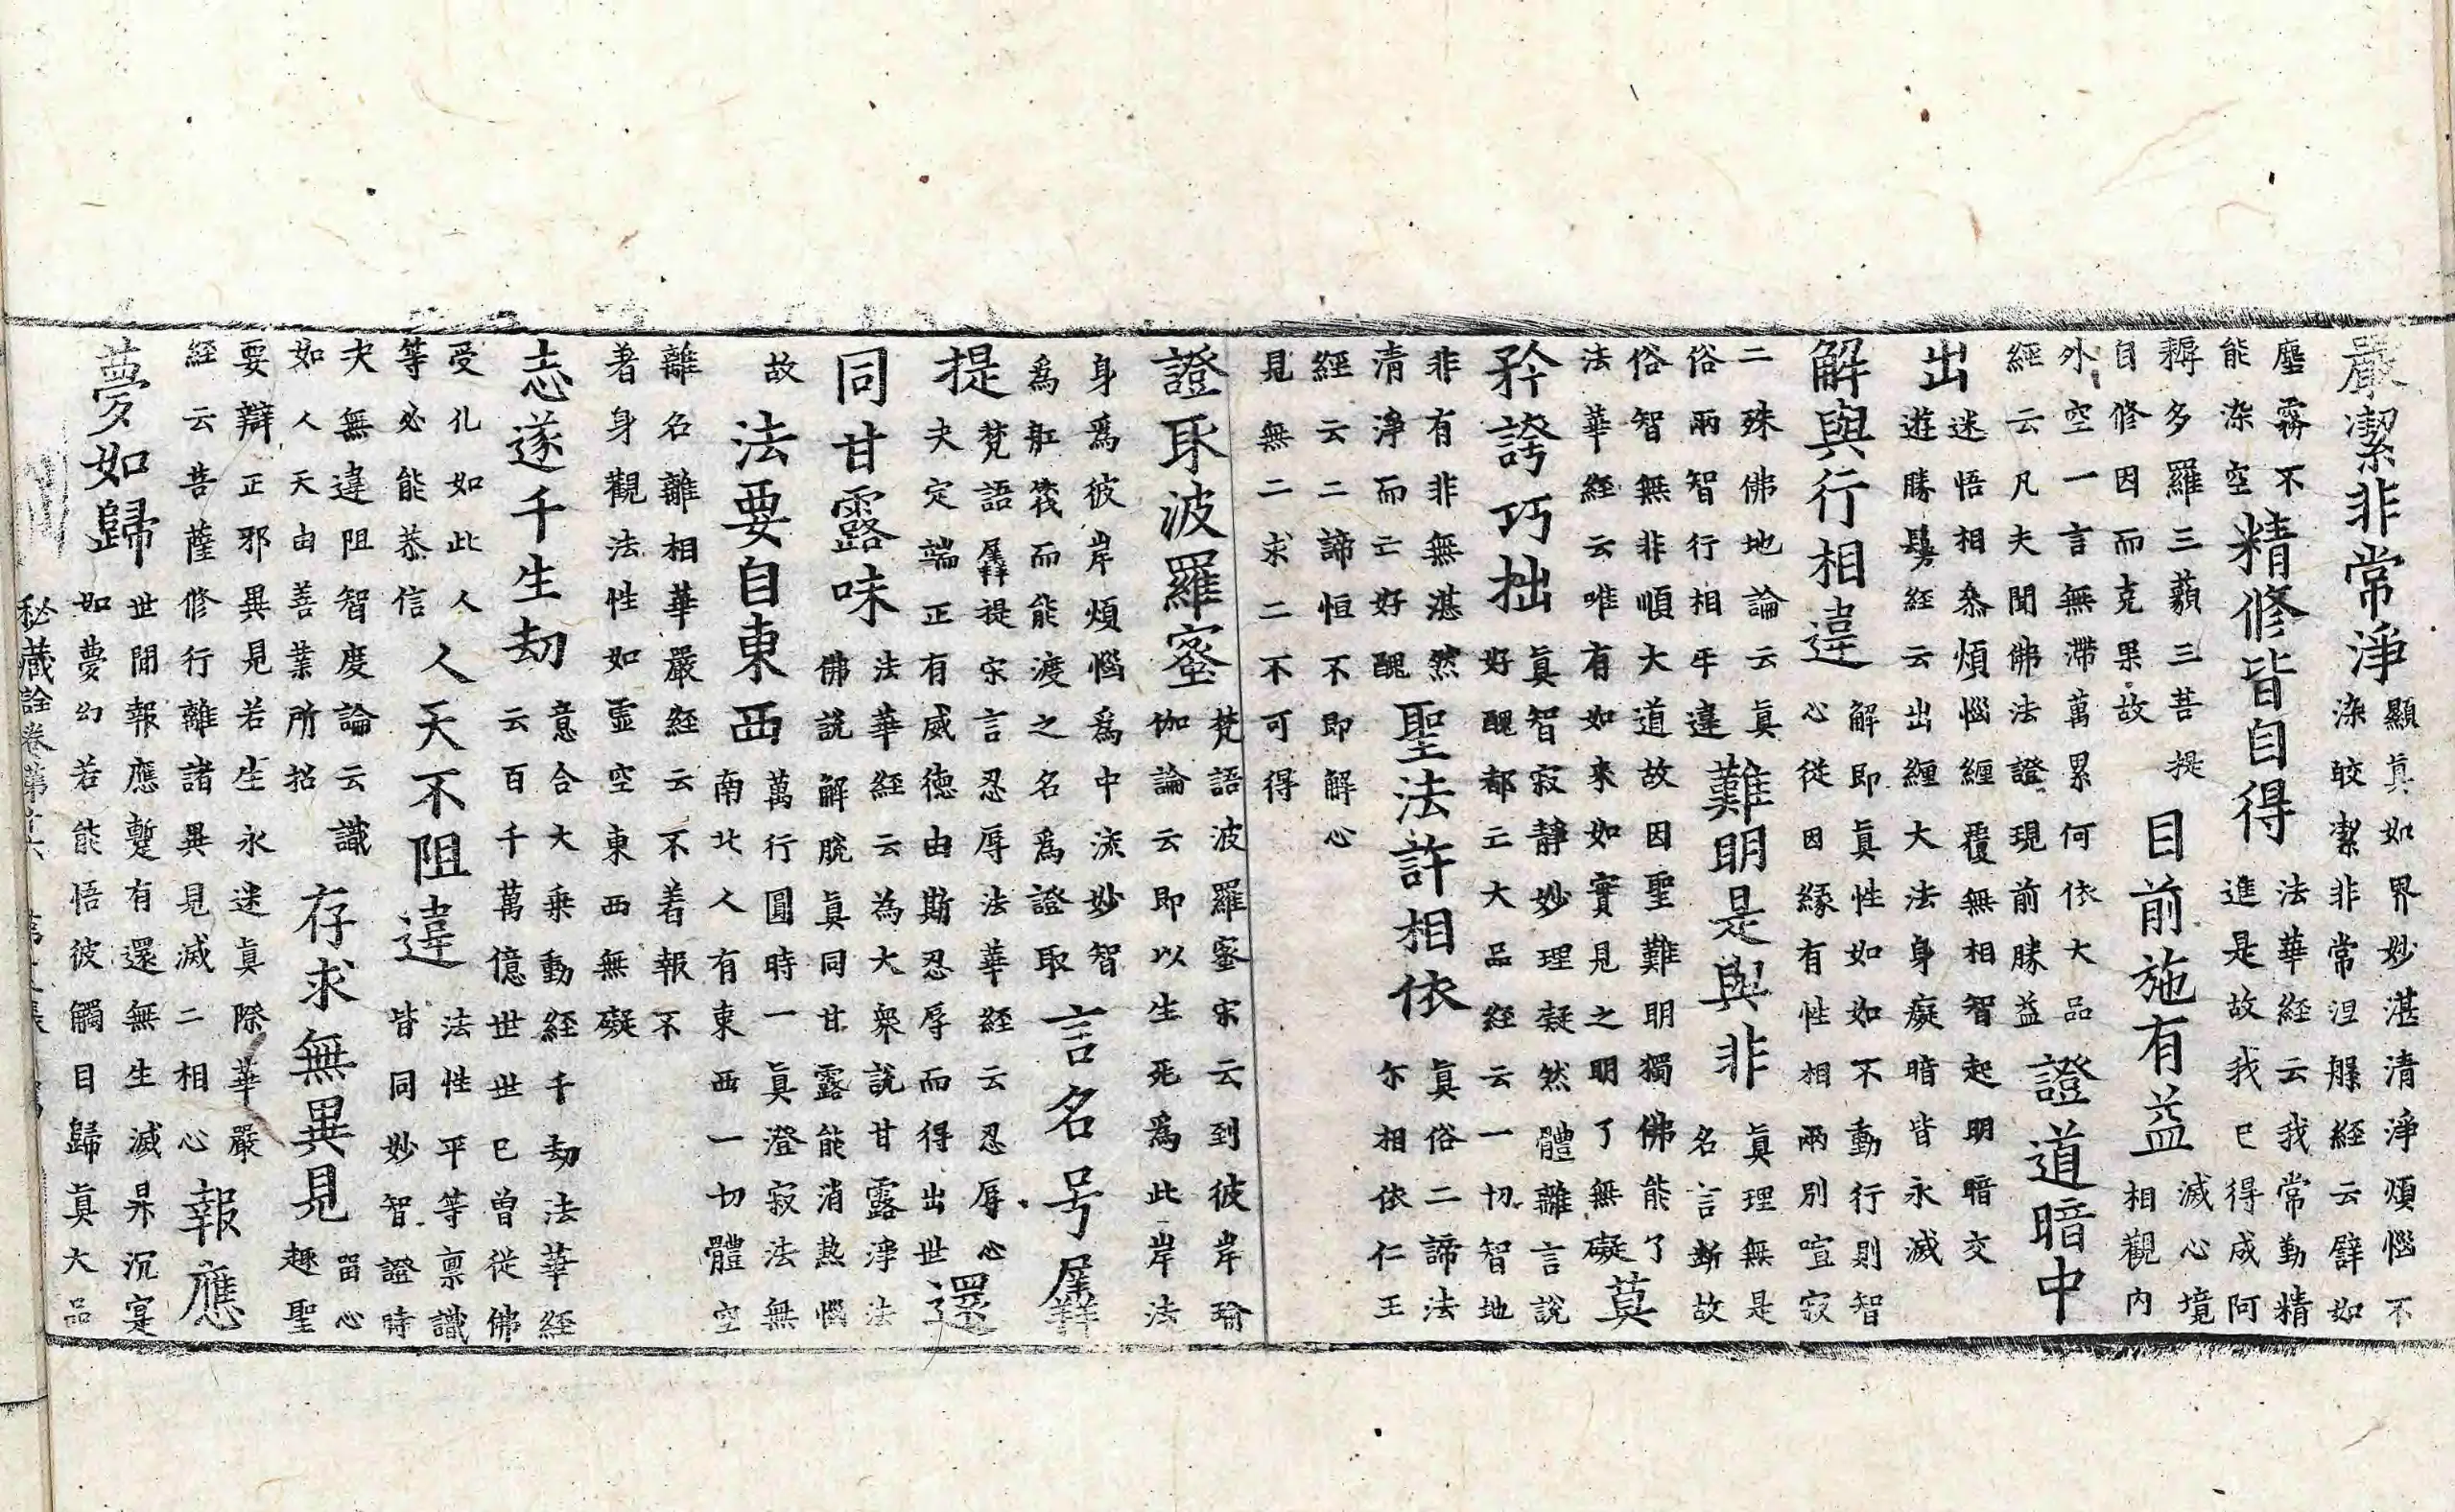 嚴潔非常淨顯真如界妙湛清淨煩惱不
染皎潔非常涅槃經云譬如
塵霧不
能染空精修皆自得法華經云我常勤精
進是故我已得成阿
耨多羅三藐三菩提
自修因而克果故目前施有益滅心境
相觀内
外空一言無滯萬累何依大品
經云凡夫聞佛法證現前勝益證道暗中
出迷悟相叅煩惱纏覆無相智起明暗交
遊勝鬘經云出纏大法身癡暗皆永滅
解與行相違解即真性如如不動行則智
心從因緣有性相兩別喧寂
二殊佛地論云真
俗兩智行相乖違難明是與非真理無是
名言斷故
俗智無非順大道故因聖難明獨佛能了
法華經云唯有如來如實見之明了無礙莫
矜誇巧拙真智寂靜妙理凝然體離言說
好醜都亡大品經云一切智地
非有非非無湛然
清淨而亡好醜聖法許相依真俗二諦法
尓相依仁王
經云二諦恒不即解心
見無二求二不可得
證取波羅蜜梵語波羅蜜宋云到彼岸瑜
伽論云即以生死為此岸法
身為彼岸煩惱為中流妙智
為舡筏而能渡之名為證取言名号羼
提梵語羼提宋言忍辱法華經云忍辱心
夫定端正有威德由斯忍辱而得出世還
同甘露味法華經云為大衆說甘露淨法
佛說解脫真同甘露能消熱惱
故法要自東西萬行圓時一真澄寂法無
南北人有東西一切體空
離名離相華嚴經云不着報不
著身觀法性如虛空東西無礙
志遂千生劫意合大乗動經千劫法華經
云百千萬億世世已曽從佛
受化如此人
等必能恭信人天不阻違法性平等禀識
皆同妙智證時
夫無違阻智度論云識
如人天由善業所招存求無異見留心
趣聖
要辯正邪異見若生永迷真際華嚴
經云菩薩修行離諸異見滅二相心報應
夢如歸世間報應蹔有還無生滅昇沉寔
如夢幻若能悟彼觸目歸真大品
秘藏詮卷第廿六